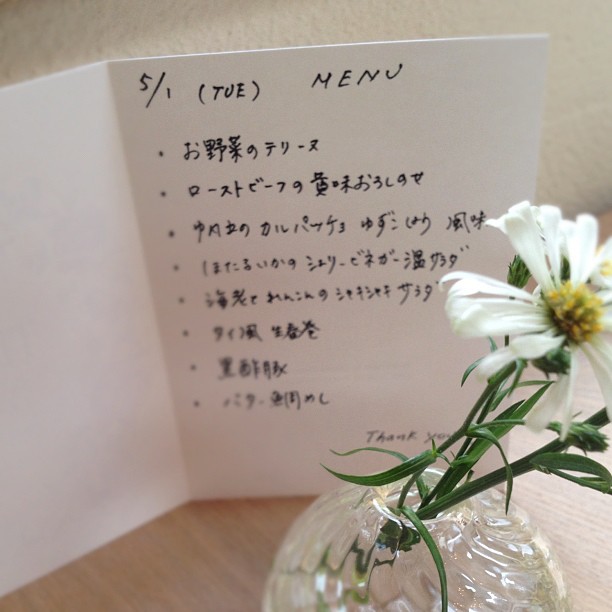 5/1 (TUE) MENU
・お野菜のテリーヌ
・ローストビーフの黄味おろしのせ
・帆立のカルパッチョ ゆずこしょう 風味
・ほたるいかのシェリービネガー温サラダ
・海老とれんこんのシャキシャキサラダ
・タイ風 生春巻
・黒酢豚
・バター鯛めし
Thank you